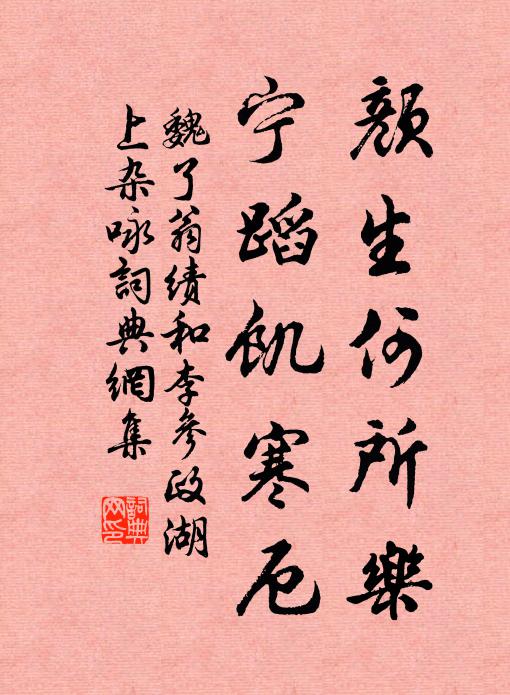 颜生何所樂
宁蹈飢寒厄
魏了翁績和李參政湖
上杂咏詞典網集
詞典网印